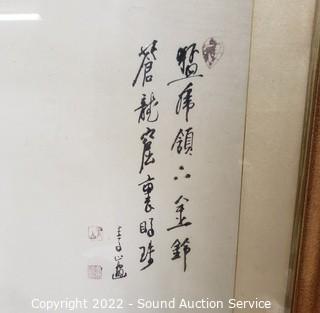 猛虎頷下金鈴
蒼龍窟裏明珠
Copyright 2022 - Sound Auction Service